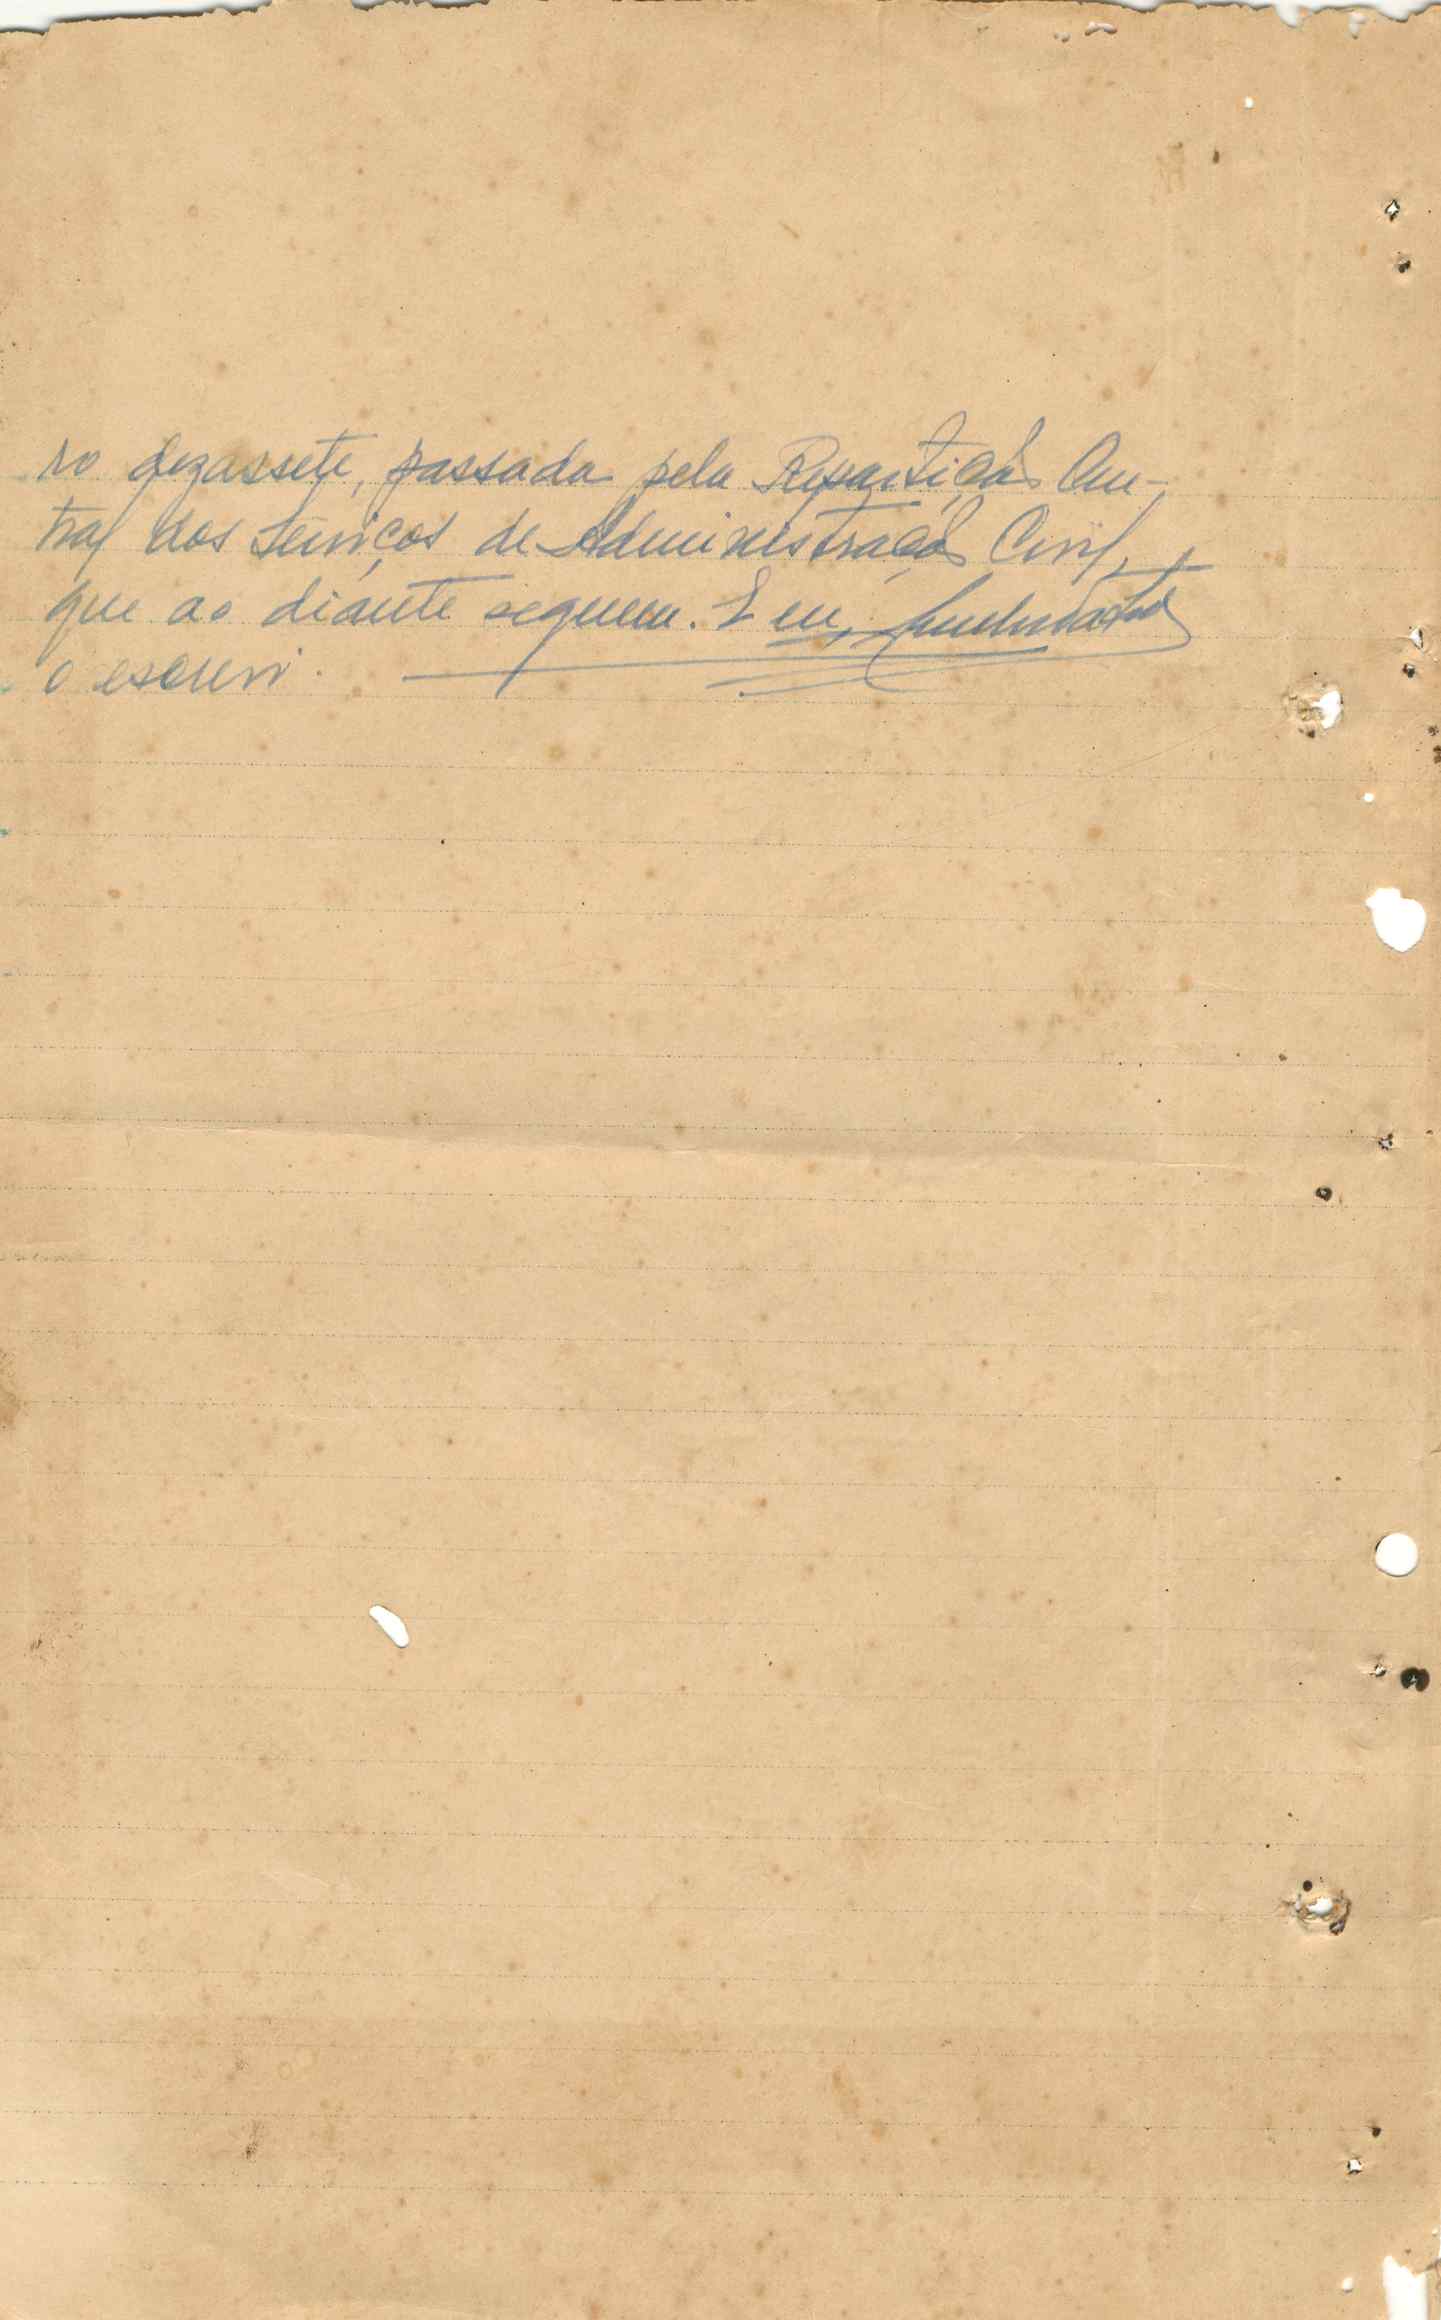 ro dezassete, passada pela Repartição Cen-
tral dos Serviços de Administração Civil,
que ao diante seguem. E eu,
o escrevi.